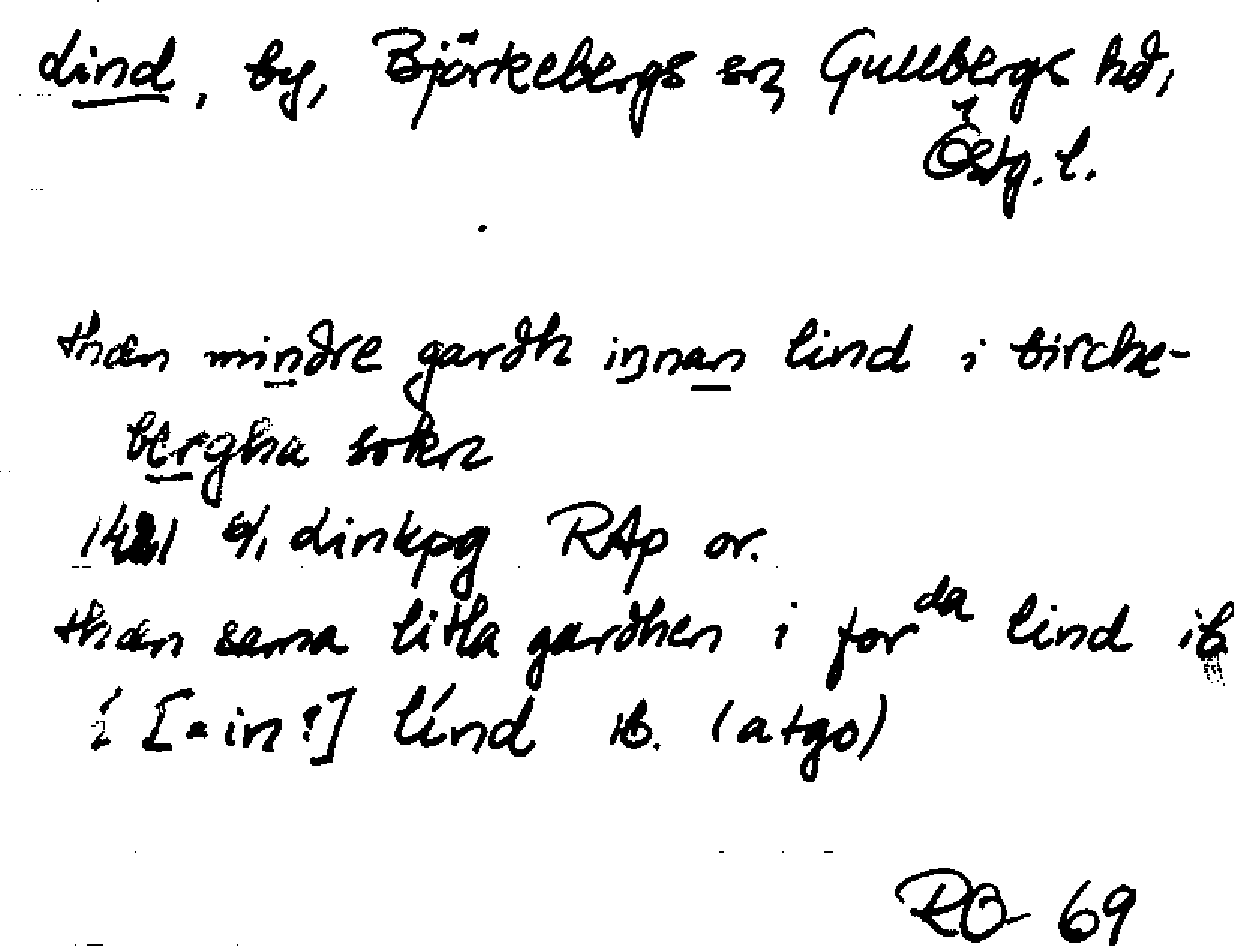 Lind, by, Björkebergs sn, Gullbergs hd,
Östg. l.
thæn mindre gardh innan lind i birche-
bergha sokn
1421 6/1 Linkpg RAp or.
thæn sama litla gardhen i for da lind ib
i [=in?] lind ib. (atgo)
RO 69